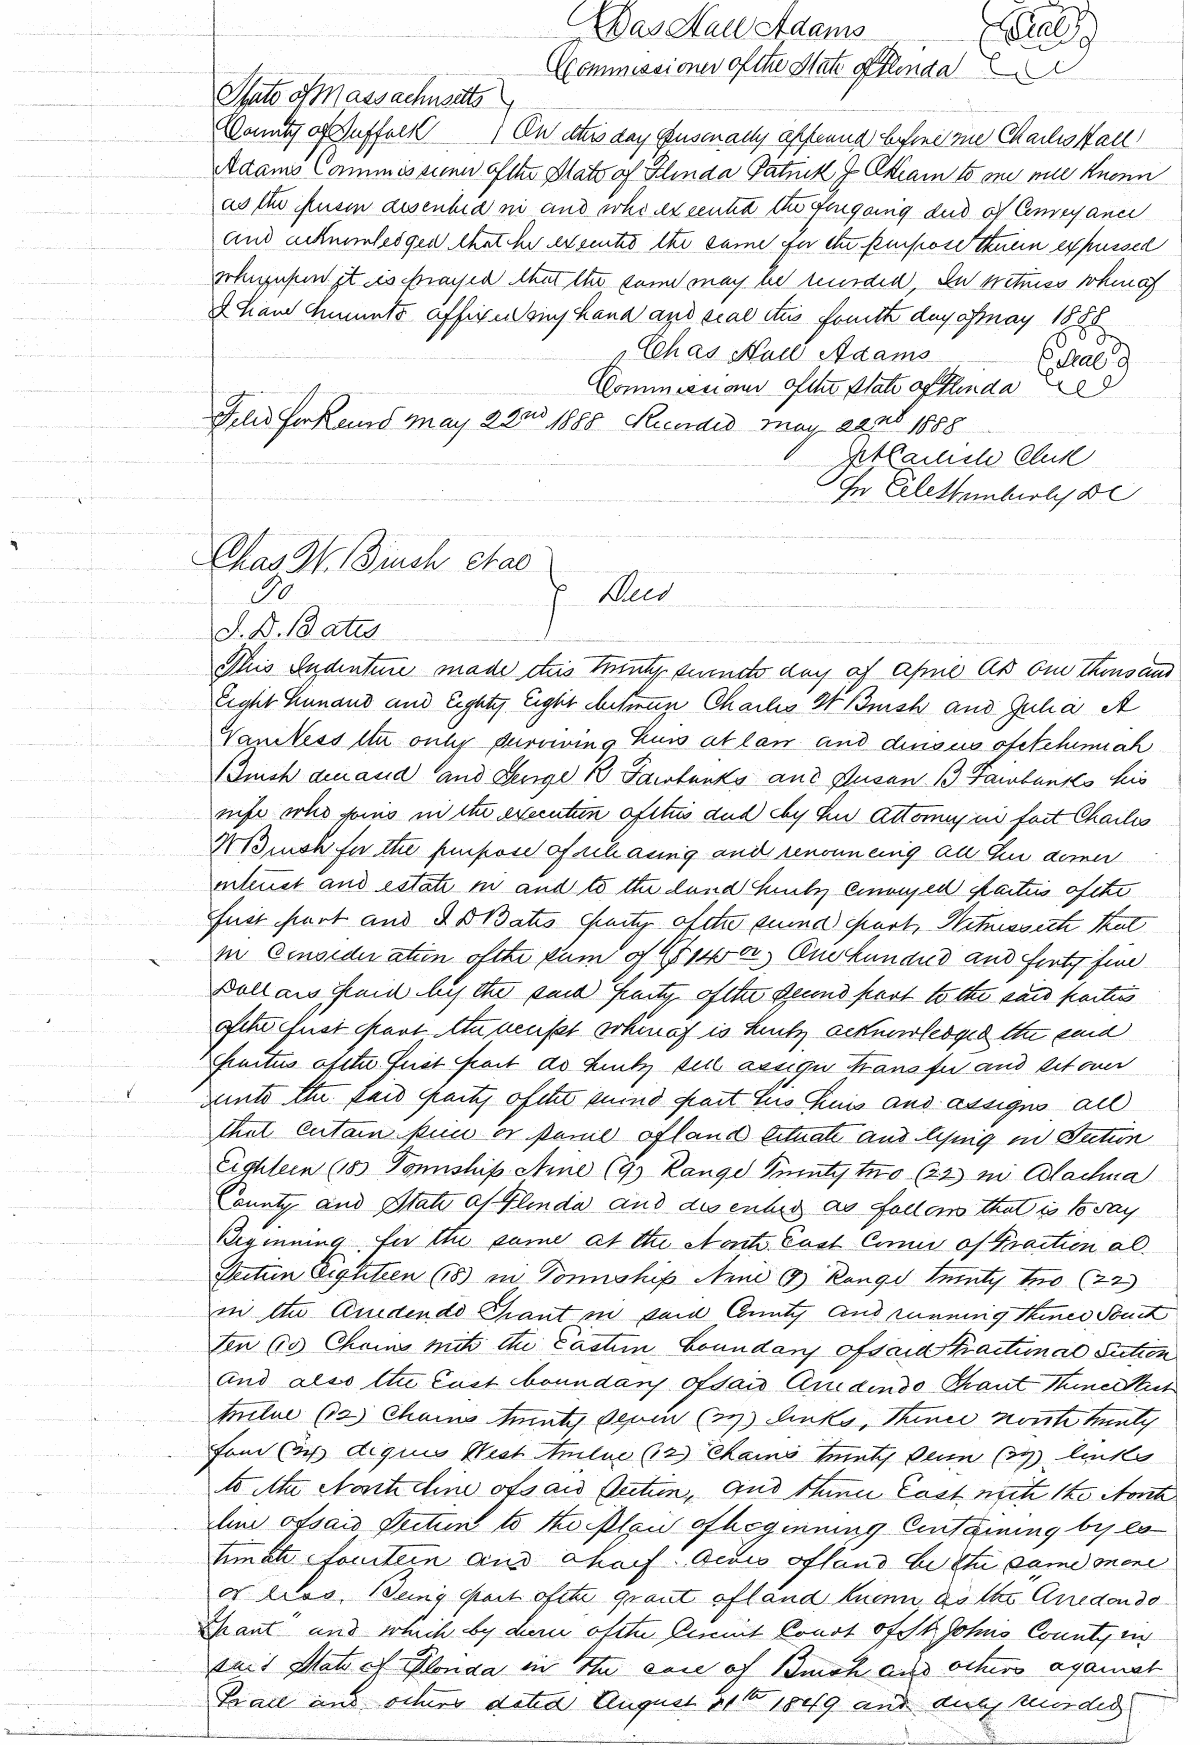 Chas Hall Adams (Seal)
Commissioner of the State of Florida
State of Massachusetts
County of Suffolk } On this day personally appeared before me Charles Hall
Adams Commissioner of the State of Florida Patrick J OKeam to me well Known
as the person described in and who executed the foregoing deed of Conveyance
and acknowledged that he executed the same for the purpose therein expressed
whereupon it is prayed that the same may be recorded, In witness whereof
I have hereunto affixed my hand and seal this fourth day of May 1888
Chas Hall Adams (Seal)
Commissioner of the State of Florida
Filed for Record May 22nd 1888 Recorded May 22nd 1888
Carlisle Clerk
Pr DC
Chas W. Brush et al
To } Deed
I. D. Bates
This Indenture made this twenty seventh day of April AD One thousand
Eight hundred and Eighty Eight between Charles W Brush and Julia A
VanNess the only surviving heirs at law and devisees of Nehemiah
Brush deceased and George R Fairbanks and Susan B Fairbanks his
wife who joins in the execution of this deed by her Attorney in fact Charles
W Brush for the purpose of releasing and renouncing all her dower
interest and estate in and to the land hereby conveyed parties of the
first part and I D Bates party of the second part, Witnesseth that
in Consideration of the sum of ($145 00) One hundred and forty five
Dollars paid by the said party of the second part to the said parties
of the first part the receipt whereof is hereby acknowledged the said
parties of the first part do hereby sell assign transfer and set over
unto the said party of the second part his heirs and assigns all
that certain piece or parcel of land situate and lying in Section
Eighteen (18) Township Nine (9) Range Twenty two (22) in Alachua
County and State of Florida and described as follows that is to say
Beginning for the same at the North East Corner of Fraction al
Section Eighteen (18) in Township Nine (9) Range twenty two (22)
in the Arredondo Grant in said County and running thence South
ten (10) Chains with the Eastern boundary of said Fractional Section
and also the East boundary of said Arredondo Grant thence West
twelve (12) Chains twenty seven (27) links, thence north twenty
four (24) degrees West twelve (12) Chains twenty seven (27) links
to the North line of said Section, and thence East with the North
line of said Section to the place of beginning Containing by es-
timate fourteen and a half acres of land be the same more
or less. Being part of the grant of land known as the "Arredondo
Grant" and which by decree of the Circuit Court of St Johns County in
said State of Florida in the case of Brush and others against
Prall and others dated August 11th 1849 and duly recorded